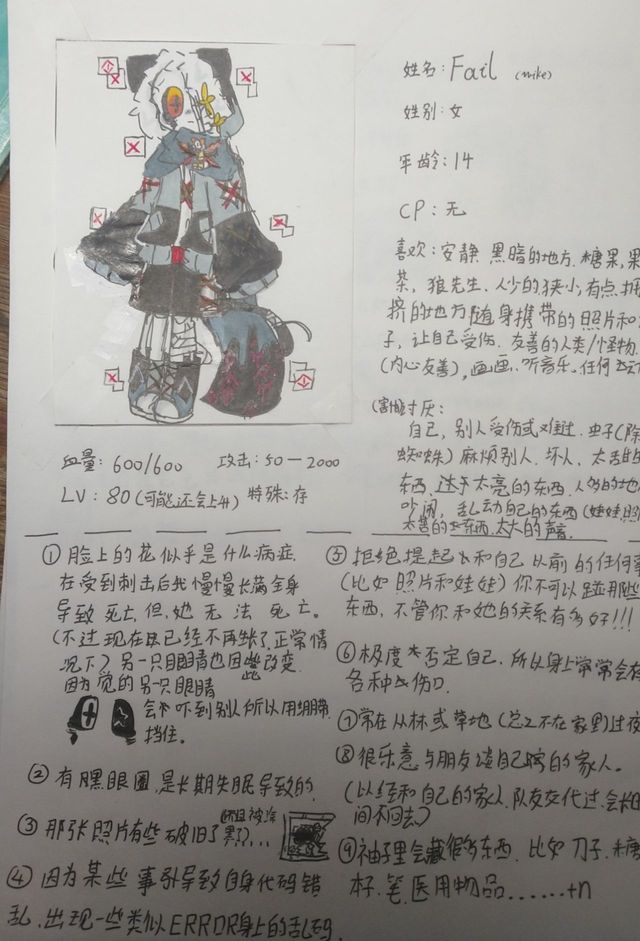 姓名：Fail (mike)
性别：女
年龄：14
CP：无
喜欢：安静、黑暗的地方、糖果,果
茶，狼先生、人少的狭小,有点拥
挤的地方随身携带的照片和
子，让自己受伤、友善的人类/怪物
(内心友善)，画画、听音乐、任何
讨厌：
自己，别人受伤或难过、虫子(除
蜘蛛)麻烦别人、坏人、太
东西、过于太亮的东西、人多的地
吵闹，乱动自己的东西(娃娃,照
太苦的东西、太大的声音
血量：600/600 攻击：50—2000
LV：80(可能还会上升) 特殊：存
①脸上的花似乎是什么病症
在受到刺激后会慢慢长满全身
导致死亡,但她无法死亡。
(不过现在已经不再长了,正常情
况下)另一只眼睛也因此改变
因为觉的另一只眼睛
会吓到别人所以用绷带
挡住。
②有黑眼圈,是长期失眠导致的
③那张照片有些破旧了(还且被涂
黑了)...
④因为某些事引导致自身代码错
乱、出现一些类似ERROR身上的乱码.
⑤拒绝提起和自己以前的任何事
(比如照片和娃娃)你不可以碰那些
东西,不管你和她的关系有多好!!!
⑥极度否定自己、所以身上常常会有
各种伤口
⑦常在丛林或草地(总之不在家里)过夜
⑧很乐意与朋友谈自己的家人。
(以经和自己的家人、队友交代过、会长时
间不回去)
⑨袖子里会藏很多东西、比如刀子、糖
杯、笔、医用物品......+n